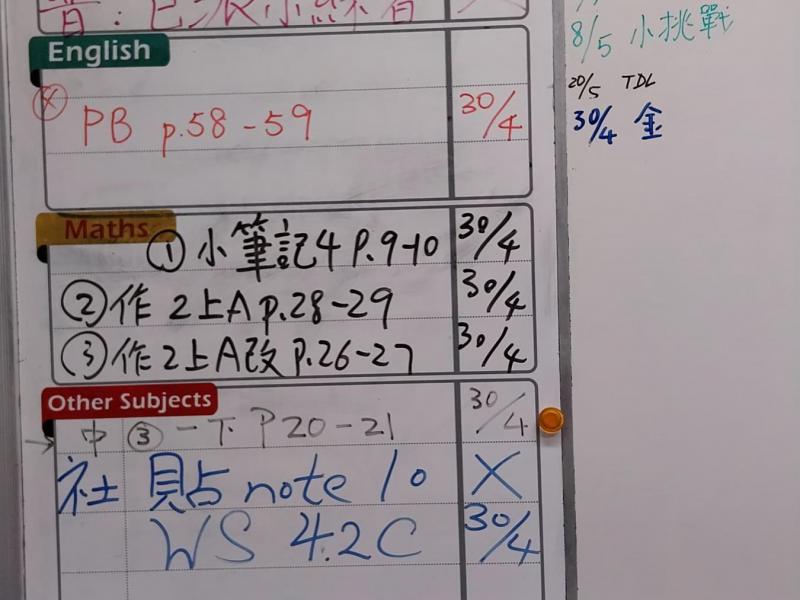 English
PB p.58-59 30/4
Maths
① 小筆記4 P.9-10 30/4
② 作2上A p.28-29 30/4
③ 作2上A改 P.26-27 30/4
Other Subjects
中 ③ 一下 P20-21 30/4
社 貼 note 10 X
WS 4.2C 30/4
8/5 小挑戰
20/5 TDL
30/4 金